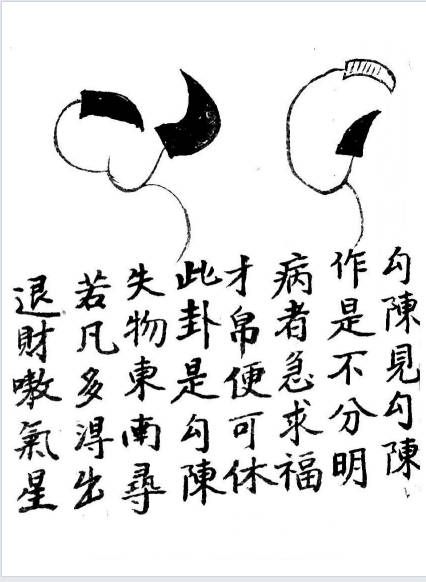 勾陳見勾陳
作是不分明
病者急求福
才帛便可休
此卦是勾陳
失物東南尋
若凡多得出
退財嗷氣星